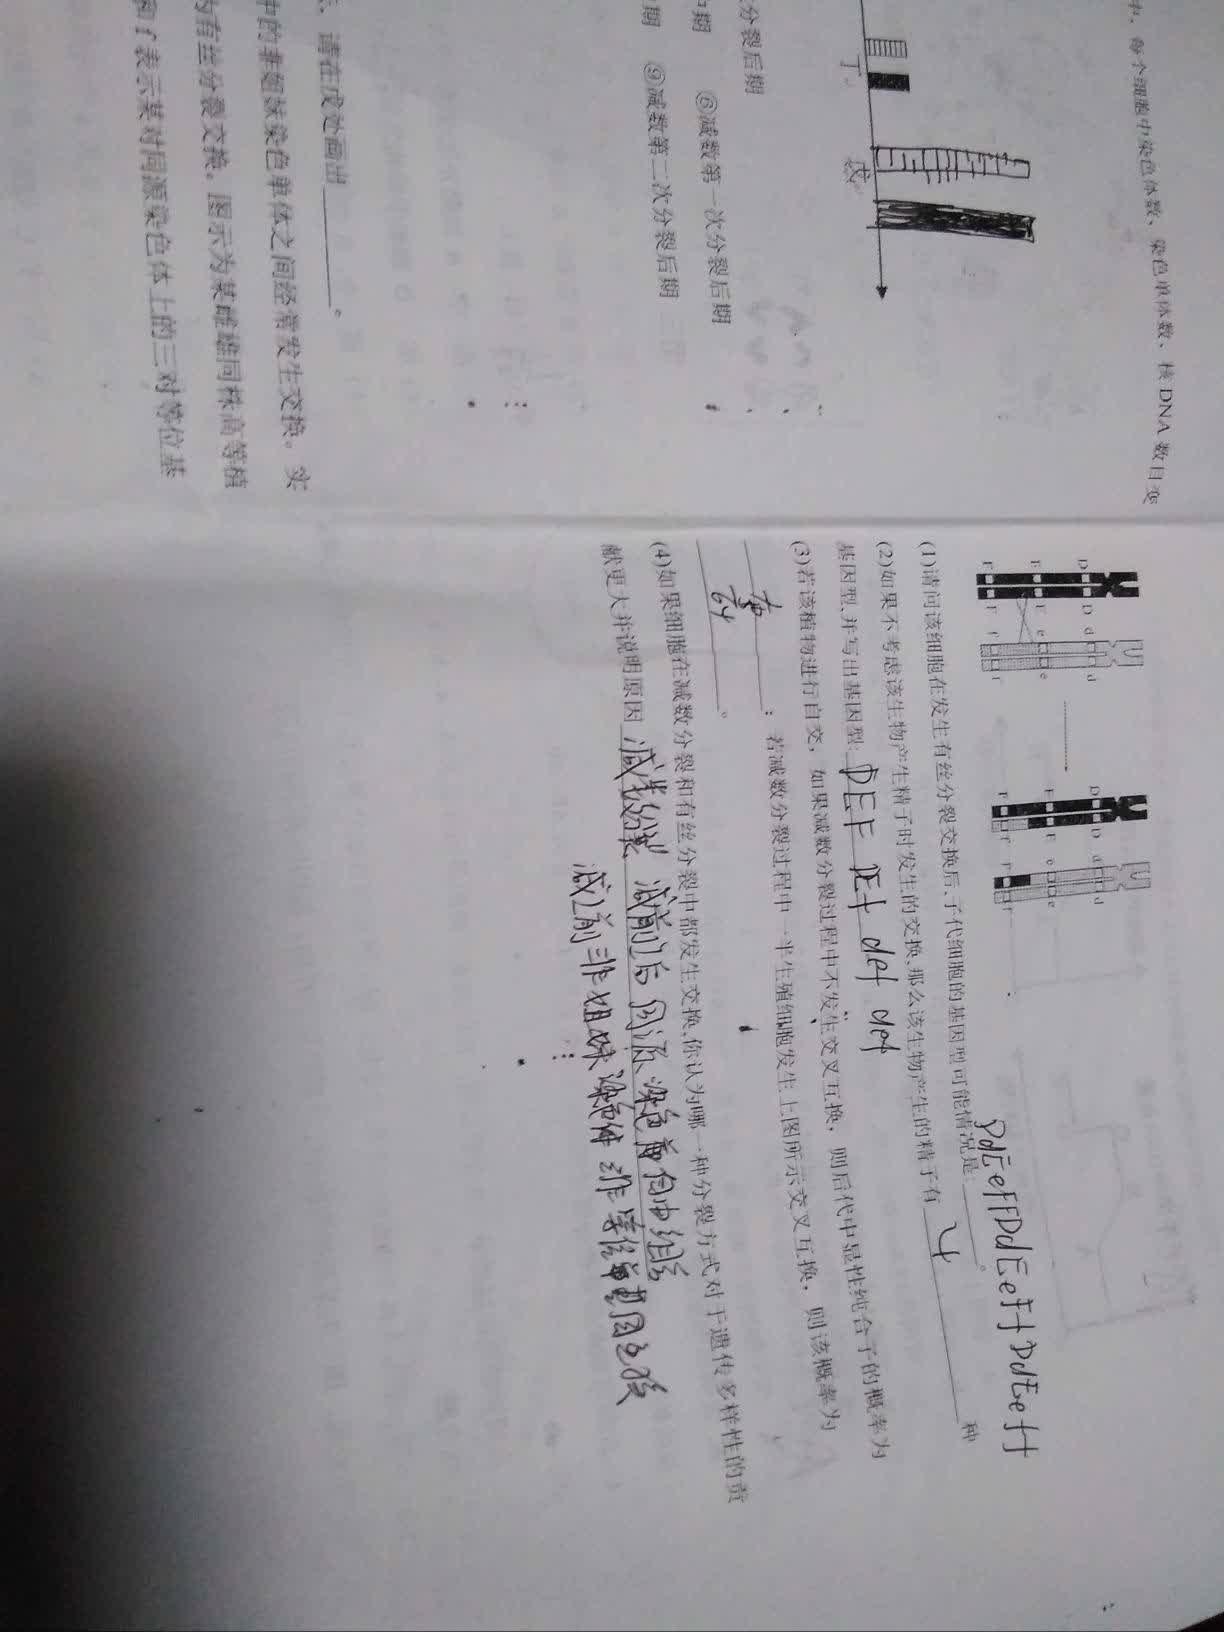 中，每个细胞中染色体数、染色单体数、核DNA数目变
丁
戊
分裂后期
期 ⑥减数第一次分裂后期
期 ⑨减数第二次分裂后期
请在戊处画出
。
中的非姐妹染色单体之间经常发生交换。实
为有丝分裂交换。图示为某雌雄同株高等植
和f表示某对同源染色体上的三对等位基
D D d d D D d d
E E e e E E e e
F F f f F f F f
(1)请问该细胞在发生有丝分裂交换后,子代细胞的基因型可能情况是: DdEeFFDdEeFfDdEeff 。
(2)如果不考虑该生物产生精子时发生的交换,那么该生物产生的精子有 4 种
基因型,并写出基因型: DEF DEf def def
(3)若该植物进行自交，如果减数分裂过程中不发生交叉互换，则后代中显性纯合子的概率为
；若减数分裂过程中一半生殖细胞发生上图所示交叉互换，则该概率为
64 。
(4)如果细胞在减数分裂和有丝分裂中都发生交换,你认为哪一种分裂方式对于遗传多样性的贡
献更大并说明原因 减数分裂 减前Ⅰ后 同源染色 自由组合
减Ⅰ前 非姐妹染色体 非等位 基因互换